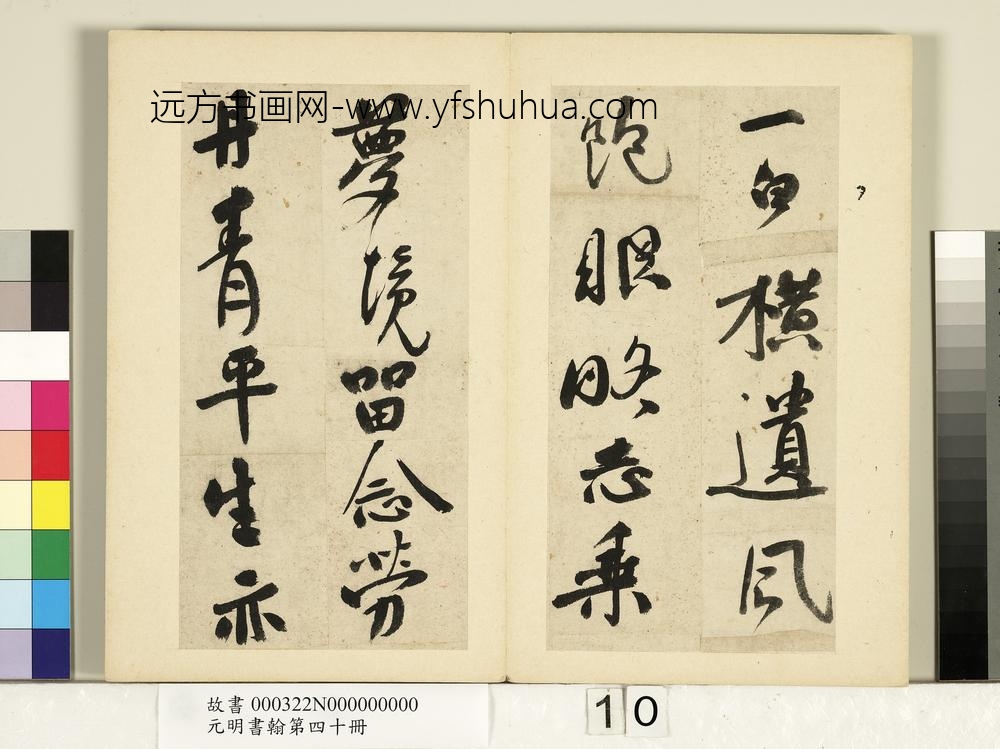 远方书画网-www.yfshuhua.com
一白橫遺風
飽眼略忘乗
夢境留念勞
丹青平生亦
故書 000322N000000000
元明書翰第四十冊
10